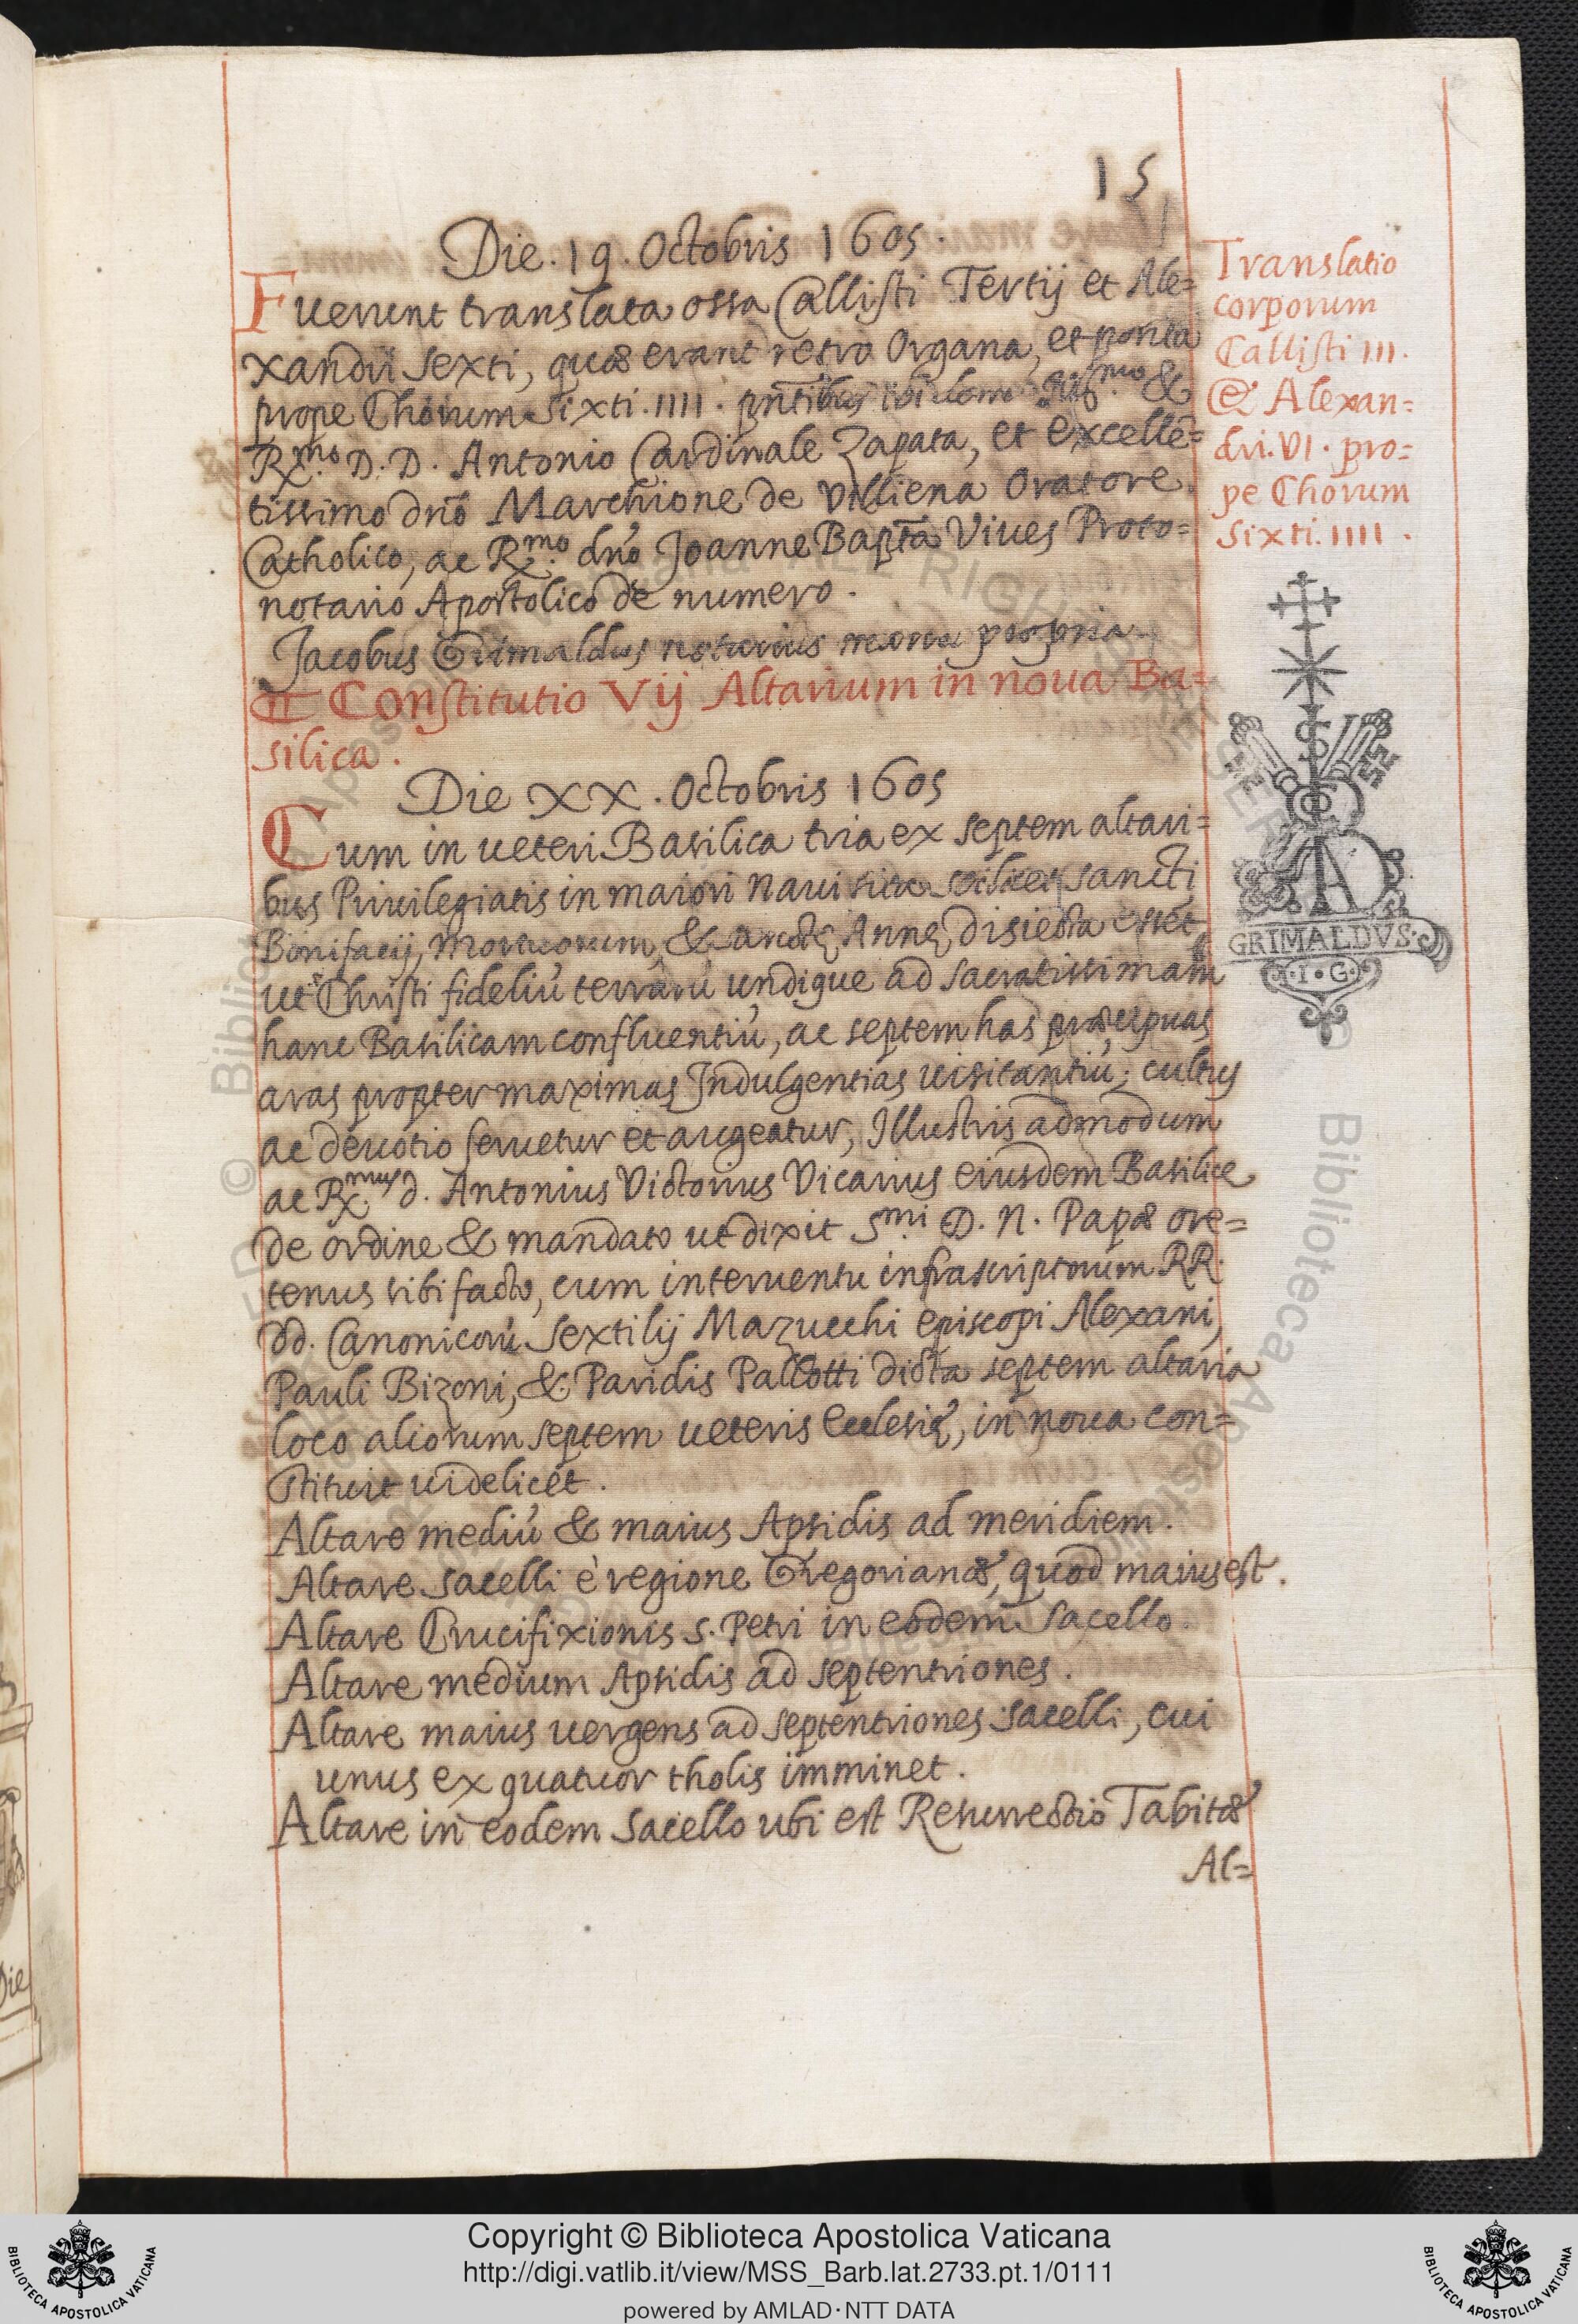 15
Die . 19 . Octobris 1605 .
Fuerunt translata ossa Callisti Tertij et Ale=
xandri sexti, quæ erant retro Organa, et posita
prope Chorum Sixti . IIII . pñtibus ibidem Illmo. &
Rmo. D. D. Antonio Cardinale Zapata, et excellē=
tissimo dnō Marchione de Villiena Oratore
Catholico, ac Rmo. dnō Joanne Bapta Viues Proto=
notario Apostolico de numero .
Jacobus Grimaldus notarius manu propria .
Translatio
corporum
Callisti III .
& Alexan=
dri . VI . pro=
pe Chorum
Sixti . IIII .
Constitutio Vij Altarium in noua Ba=
silica .
Die XX . Octobris 1605
Cum in ueteri Basilica tria ex septem altari=
bus Priuilegiatis in maiori naui sita scilicet sancti
Bonifacij, Mortuorum, & sanctę Annę disiecta essēt,
ut Christi fideliū terrarū undique ad sacratissimam
hanc Basilicam confluentiū, ac septem has præcipuas
aras propter maximas Indulgentias uisitantiū; cultus
ac deuotio seruetur et augeatur, Illustris admodum
ac Rmus. d. Antonius Victorius Vicarius eiusdem Basilice
de ordine & mandato ut dixit Smi. D. N. Papæ ore=
tenus sibi facto, cum interuentu infrascriptorum RR.
dd. Canonicorū Sextilij Mazucchi episcopi Alexani,
Pauli Bizoni, & Paridis Pallotti dicta septem altaria
loco aliorum septem ueteris Ecclesię, in noua con=
stituit uidelicet .
Altare mediū & maius Apsidis ad meridiem .
Altare sacelli è regione Gregorianæ, quod maius est .
Altare Crucifixionis S. Petri in eodem sacello .
Altare medium Apsidis ad septentriones .
Altare maius uergens ad septentriones sacelli, cui
unus ex quatuor tholis imminet .
Altare in eodem sacello ubi est Resurrectio Tabitæ
Al=
GRIMALDVS
I · G
Die
Copyright © Biblioteca Apostolica Vaticana
http://digi.vatlib.it/view/MSS_Barb.lat.2733.pt.1/0111
powered by AMLAD · NTT DATA
BIBLIOTECA APOSTOLICA VATICANA
BIBLIOTECA APOSTOLICA VATICANA